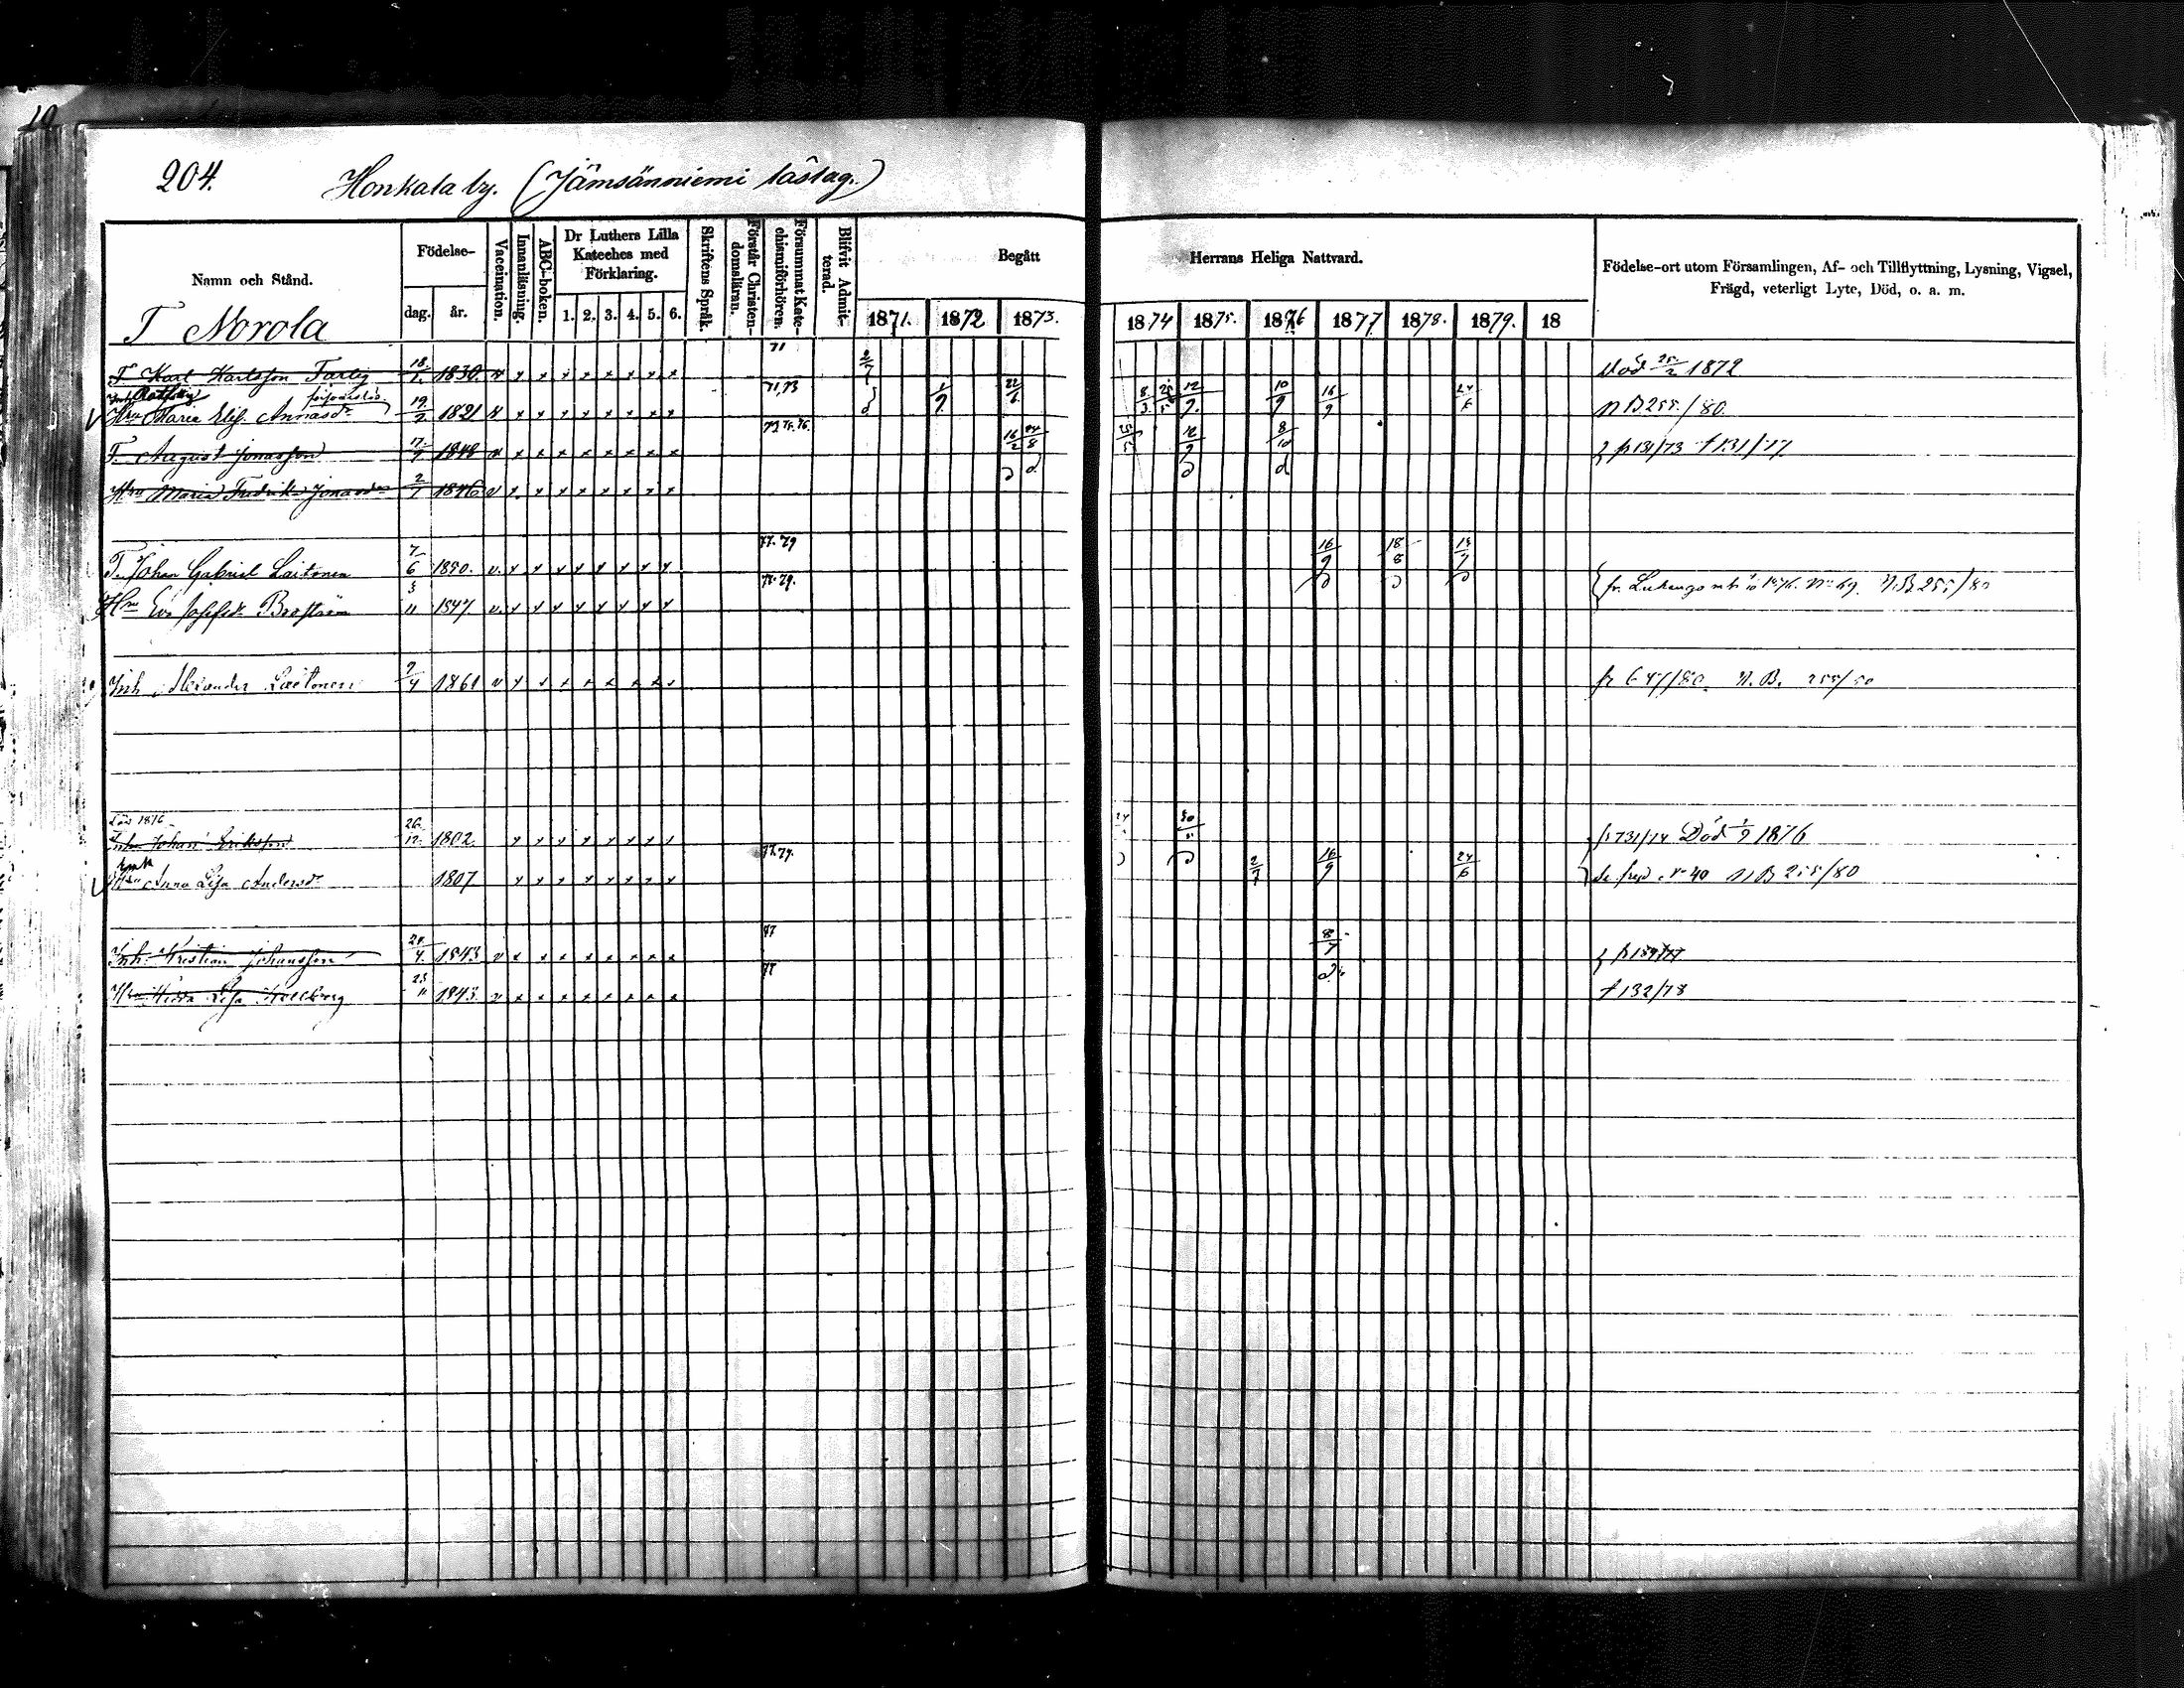 204. Honkala by. (Jämsänniemi låstag.)
Namn och Stånd. Födelse- dag. år. Vaccination. Innanläsning. ABC-boken. Dr Luthers Lilla Kateches med Förklaring. 1. 2. 3. 4. 5. 6. Skriftens Språk. Förstår Christendomsläran. Försummat Katechismiförhören. Blifvit Admitterad. Begått Herrans Heliga Nattvard. Födelse-ort utom Församlingen, Af- och Tillflyttning, Lysning, Vigsel, Frägd, veterligt Lyte, Död, o. a. m.
1871. 1872 1873. 1874 1875. 1876 1877 1878. 1879. 18
T Norola
T Karl Karlsson Farlig 18/1. 1830. v x x x x x x x x 71 2/7 död 25/2 1872
Hru Maria Elis. Annasdr 19/2 1821 v x x x x x x x x 71,73 1/9 22/6 12/9. 10/9 16/9 24/6 N B 255/80.
T. August Jonasson 17/9 1848 v x x x x x x x x 16/2 24/8 25/5 12/9 8/10 fr 131/73 t 131/77
Hru Maria Fredrika Jonasdr 2/7 1846 v x x x x x x x x
T. Johan Gabriel Laitonen 7/6 1850. v. x x x x x x x x 77. 79 16/9 18/8 15/7
Hru Eva Josefsdr Broström 3/" 1847. v. x x x x x x x x 77. 79. N. B. 255/80
Inh Alexander Laitonen 9/4 1861 v x x x x x x x x N. B. 255/80
Inh Johan Eriksson 26/12. 1802. x x x x x x x x fr 731/74 Död 1/9 1876
Hru Anna Lisa Andersdr 1807 x x x x x x x x 77. 79. 2/7 16/9 24/6 N B 255/80
Inh. Kristian Johansson 1843 v x x x x x x x x 77 8/7
Hru Hedda Lisa Hellberg 23/" 1843. v x x x x x x x x 77 t 132/78